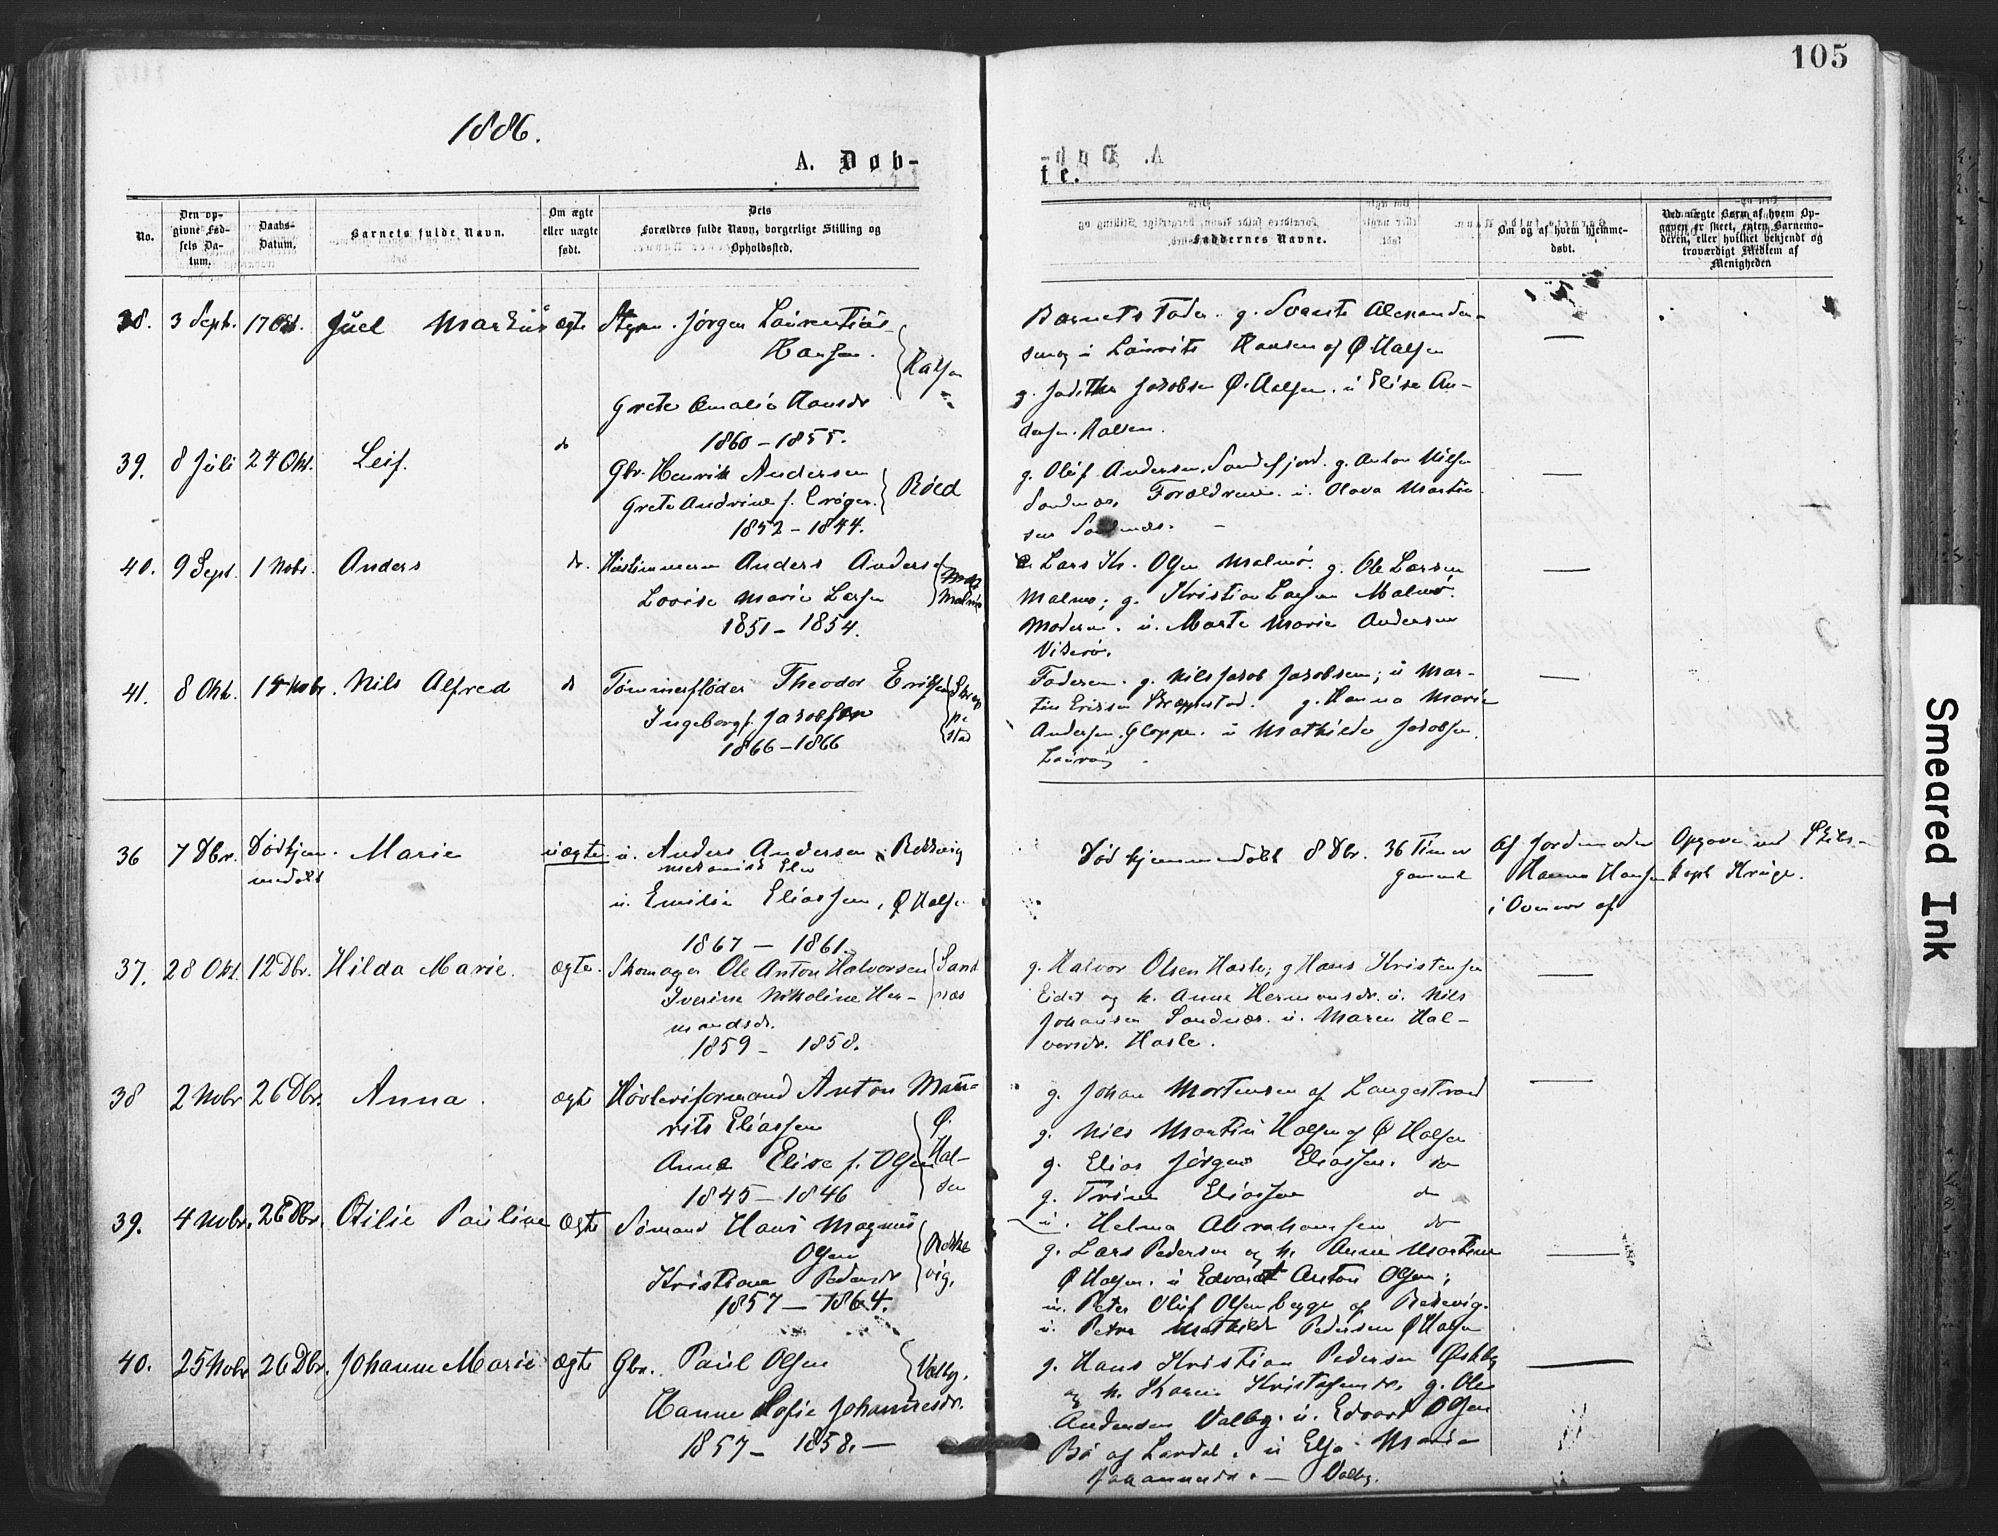 105
1886.
A. Døb-
te.
No.
Den op-
givne Fød-
sels Da-
tum.
Daabs-
Datum.
Barnets fulde Navn.
Om ægte
eller uægte
født.
Dets
Forældres fulde Navn, borgerlige Stilling og
Opholdssted.
Faddernes Navne.
Om og af hvem hjemme-
døbt.
Ved uægte Barn af hvem Op-
gaven er skeet, enten Barnemo-
deren, eller hvilket bekjendt og
troværdigt Medlem af
Menigheden
38. 3 Sept. 17 Okt. Juel Markus ægte Jørgen Laurentius
Hansen.
Halsen
Grete Amalie Hansdr
1860 - 1855.
Barnets Fader. g. Svente Alexander-
sen og u Laurits Hansen af Ø Halsen
g. Jacobsen Ø. Halsen. u Elise An-
dersen. Halsen.
39. 8 Juli 24 Okt. Leif. do
Gbr. Henrik Andersen
Grete Andrine f.
Røed
1852 - 1844.
g. Oluf Andersen, Sandefjord. g. Anton Nilsen
Sandnæs, Forældrene. u. Olava Martin-
sen Sandnæs.
40. 9 Sept. 1 Nobr. Anders do. Hustømmerm Anders Anders
Lovise Marie Larsen
Malmø
1851 - 1854.
Lars Kr. Olsen Malmø. g. Ole Larsen
Malmø; g. Kristian Larsen Malmø.
Moderen. u. Marte Marie Andersen
Viderø.
41. 8 Okt. 14 Nobr. Nils Alfred do Tømmerfløder Theodor Eriksen
Ingeborg f. Jacobsen
Skrep
pe
stad
1866 - 1866
Faderen. g. Nils Jacob Jacobsen; u Mar-
tin Eriksen Skreppestad. g. Hanna Marie
Andersen. Gloppe. u Mathilde Jacobsen.
Laurvig
36 7 Dbr. Død hjem-
medøbt
Marie uægte u. Anders Andersen, Rekkevig
u. Emilie Eliassen, Ø Halsen
1867 - 1861.
Død hjemmedøbt 8 Dbr. 36 Timer
gammel
Af Jordmoder
Hanna Hansen
i Overvær af
Opgave ved Skibs-
kapt Krüge.
37. 28 Okt. 12 Dbr. Hilda Marie. ægte. Skomager Ole Anton Halvorsen
Iverine Nikoline Her-
mandsdr.
Sand
næs
1859 - 1858.
g. Halvor Olsen Hasle; g Hans Kristensen
Eidet og h. Anne Hermansdr. u. Nils
Johansen Sandnæs. u. Maren Hal-
vorsdr. Hasle.
38 2 Nobr 26 Dbr. Anna. ægte Høvleriformand Anton Mau-
rits Eliassen
Anna Elise f. Olsen
Ø.
Hal-
sen
1845 - 1846
g. Johan Mortensen af Langestrand
g. Nils Martin Halsen af Ø Halsen
g. Elias Jørgen Eliassen. do
g. Trine Eliassen do
u. Helma Abrahamsen do
39. 4 Nobr. 26 Dbr. Otilie Pauline Ægte Sømand Hans Magnus
Olsen
Kristiane Pedersdr
Rekke
vig.
1857 - 1864.
g. Lars Pedersen og h. Anne Martine
Ø Halsen. u Edvard Anton Olsen;
u. Peter Oluf Olsen begge af Rekkevig.
u. Petra Mathilde Pedersen Ø Halsen
40. 25 Nobr 26 Dbr. Johanne Marie ægte Gbr. Paul Olsen
Hanne Sofie Johannesdr.
Valby.
1857 - 1858. -
g. Hans Kristian Pedersen Østby
og h. Karen Kristofersdr. g. Ole
Andersen Valby. u. Edvard Olsen
Bø af Lardal. u Else Marie
Johannesdr. - Valby.
Smeared Ink